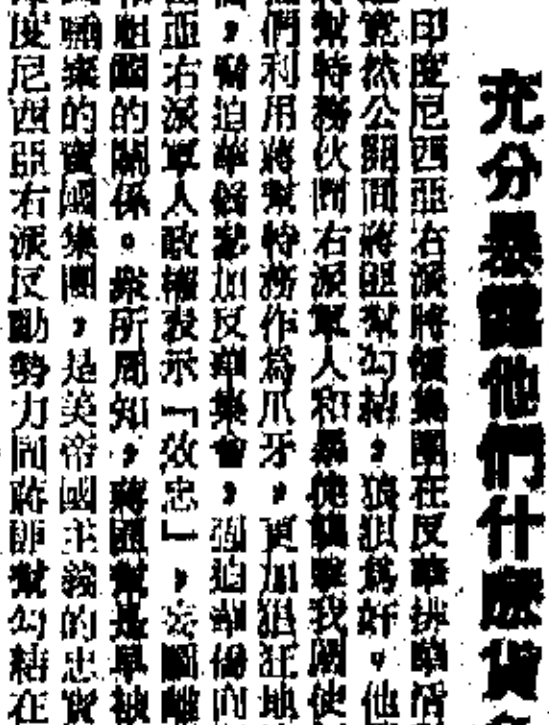 充分暴露他們什麼貨
印度尼西亞右派將領集團在反華排華活
竟然公開同蔣匪幫勾結，狼狽為奸。他
幫特務伙同右派軍人和暴徒襲擊我國使
們利用蔣幫特務作為爪牙，更加猖狂地
，脅迫華僑參加反華集會，強迫華僑向
亞右派軍人政權表示「效忠」，妄圖離
粗國的關係。眾所周知，蔣匪幫是早被
唾棄的賣國集團，是美帝國主義的忠實
度尼西亞右派反動勢力同蔣匪幫勾結在